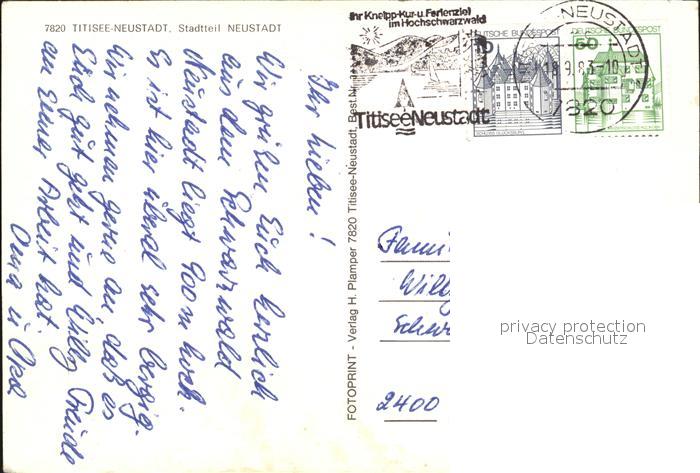 7820 TITISEE-NEUSTADT, Stadtteil NEUSTADT
Ihr Lieben!
Wir grüßen Euch herzlich
aus dem Schwarzwald
Neustadt liegt 900 m hoch.
Es ist hier überal sehr bergig.
Wir nehmen gerne an, daß es
Euch gut geht und Willy Freude
an seiner Arbeit hat.
Oma u Opa
FOTOPRINT - Verlag H. Plamper 7820 Titisee-Neustadt, Best.Nr.
Ihr Kneipp-Kur-u. Ferienziel
im Hochschwarzwald
Titisee Neustadt
DEUTSCHE BUNDESPOST
SCHLOSS GLÜCKSBURG
DEUTSCHE BUNDESPOST
50
NEUSTADT
18.9.83-10
7820
Fami
Willy
Schw
2400
privacy protection
Datenschutz